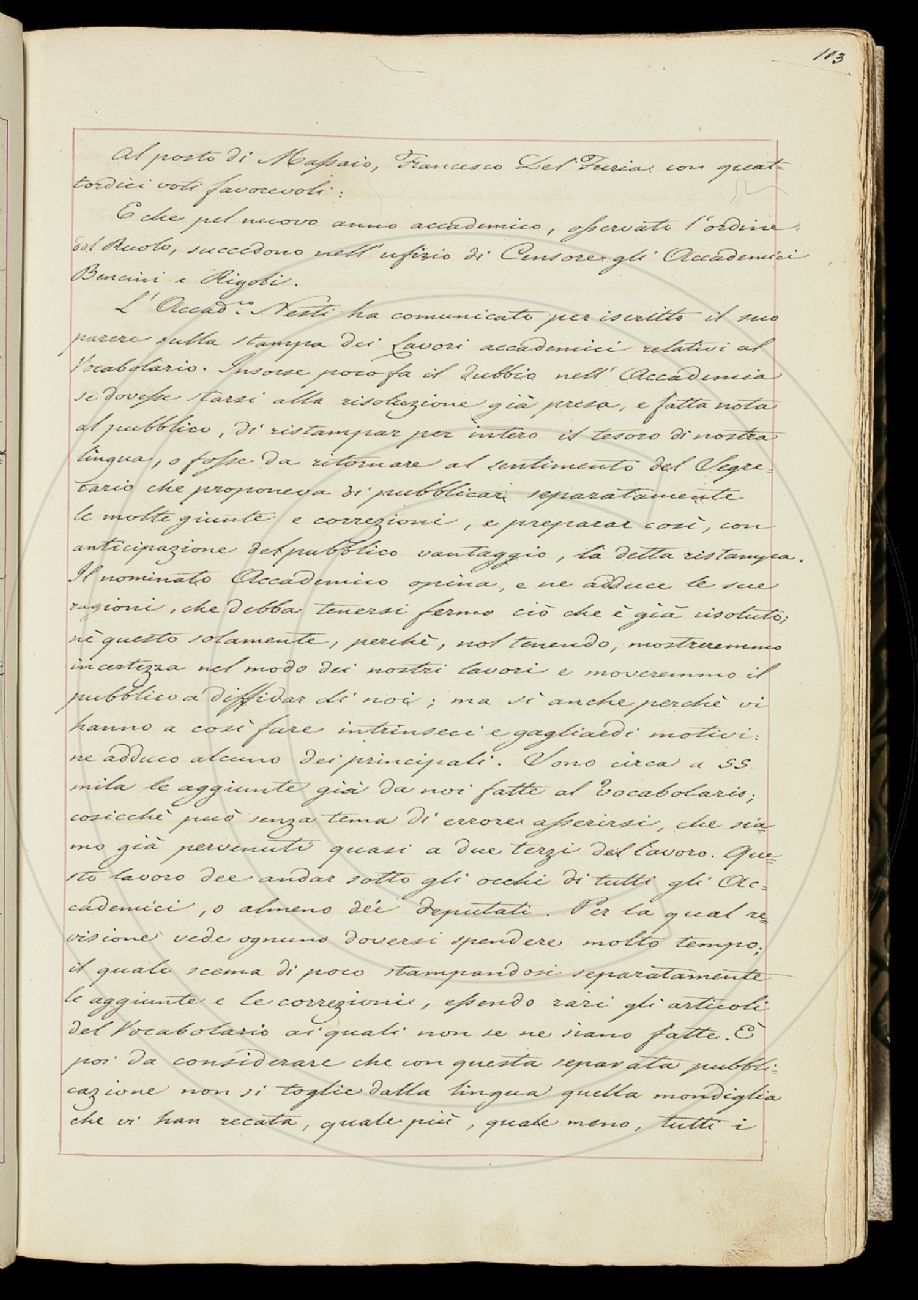 113
Al posto di Massaio, Francesco Del Furia con quat-
tordici voti favorevoli:
E che pel nuovo anno accademico, osservato l'ordine
del Ruolo, succedono nell'ufizio di Censore gli Accademici
Bencini e Rigoli.
L'Accad.co Nesti ha comunicato per iscritto il suo
parere sulla stampa dei Lavori accademici relativi al
Vocabolario. Insorse poco fa il dubbio nell'Accademia
se dovesse starsi alla risoluzione già presa, e fatta nota
al pubblico, di ristampar per intero il tesoro di nostra
lingua, o fosse da ritornare al sentimento del Segre-
tario che proponeva di pubblicar separatamente
le molte giunte e correzioni, e preparar così, con
anticipazione del pubblico vantaggio, la detta ristampa.
Il nominato Accademico opina, e ne adduce le sue
ragioni, che debba tenersi fermo ciò che è già risoluto;
nè questo solamente, perchè, nol tenendo, mostreremmo
incertezza nel modo dei nostri lavori e moveremmo il
pubblico a diffidar di noi; ma sì anche perchè vi
hanno a così fare intrinseci e gagliardi motivi:
ne adduco alcuno dei principali. Sono circa a 55.
mila le aggiunte già da noi fatte al Vocabolario;
cosicchè può senza tema di errore asserirsi, che sia-
mo già pervenuti quasi a due terzi del lavoro. Que-
sto lavoro dee andar sotto gli occhi di tutti gli Ac-
cademici, o almeno dei deputati. Per la qual re-
visione vede ognuno doversi spendere molto tempo;
il quale scema di poco stampandosi separatamente
le aggiunte e le correzioni, essendo rari gli articoli
del Vocabolario ai quali non se ne siano fatte. È
poi da considerare che con questa separata pubbli-
cazione non si toglie dalla lingua quella mondiglia
che vi han recata, quale più, quale meno, tutti i